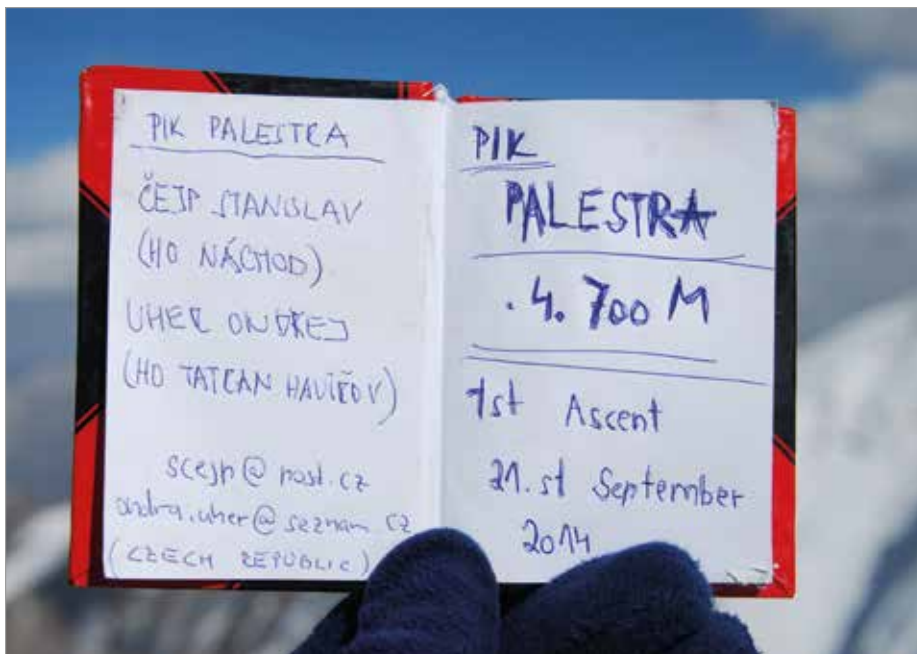 PIK PALESTRA
ČEJP STANISLAV
(HO NÁCHOD)
UHER ONDŘEJ
(HO TATRAN HAVÍŘOV)
scejp@post.cz
ondra.uher@seznam.cz
(CZECH REPUBLIC)
PIK
PALESTRA
.4.700 M
1st Ascent
21.st September
2014